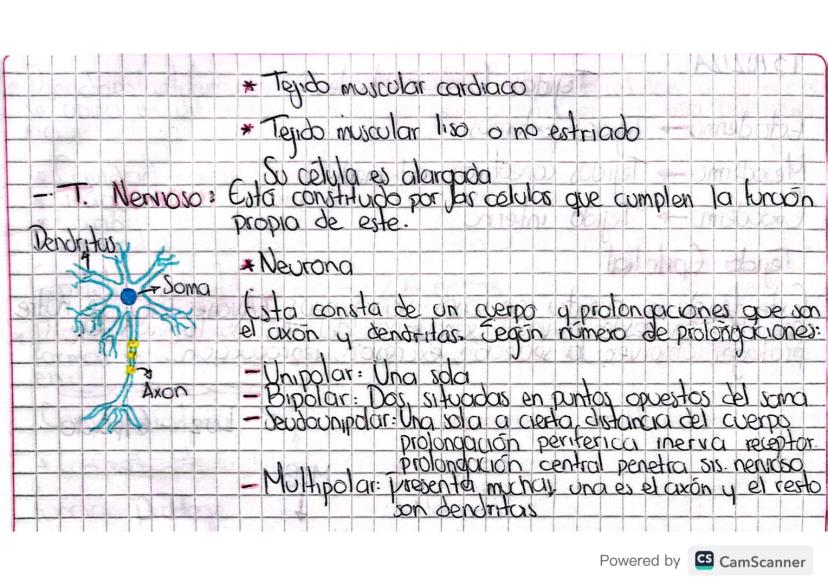 * Tejido muscular cardiaco
* Tejido muscular liso o no estriado
Su célula es alargada
- T. Nervioso: Está constituido por las células que cumplen la función
propia de este.
Dendritas
* Neurona
Soma
Esta consta de un cuerpo y prolongaciones que son
el axón y dendritas. Según número de prolongaciones:
- Unipolar: Una sola
Axon
- Bipolar: Dos, situadas en puntos opuestos del soma
- Seudounipolar: Una sola a cierta distancia del cuerpo
prolongación periferica inerva receptor.
prolongación central penetra sis. nervioso
- Multipolar: Presenta muchas, una es el axón y el resto
son dendritas
Powered by CS CamScanner